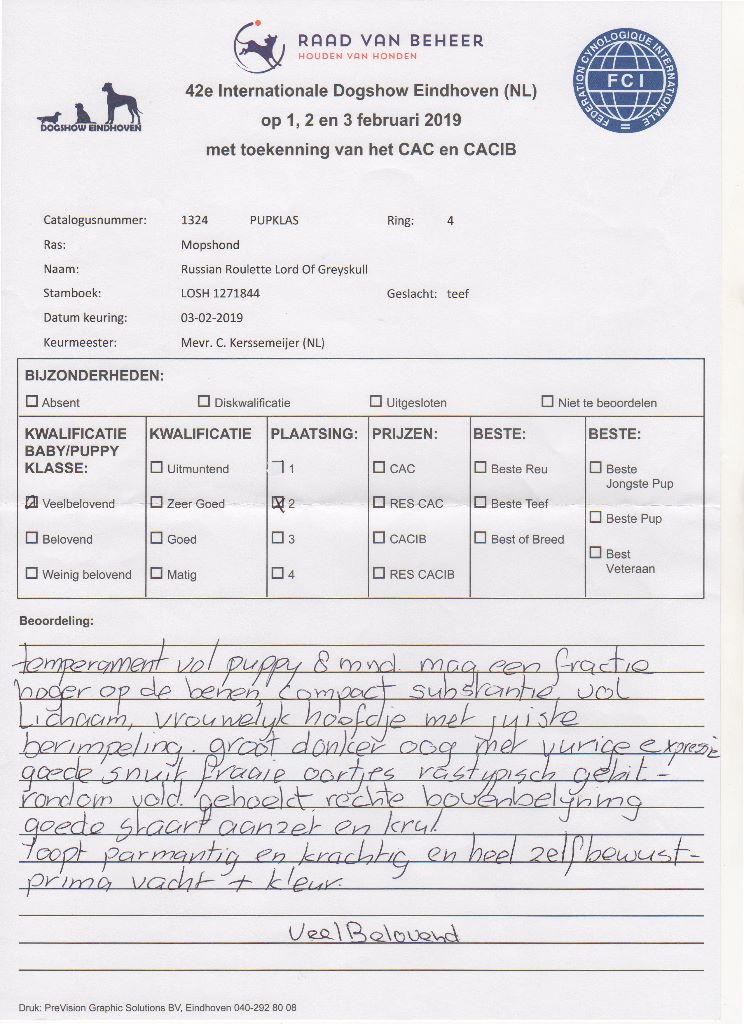 RAAD VAN BEHEER
HOUDEN VAN HONDEN
FEDERATION CYNOLOGIQUE INTERNATIONALE
FCI
DOGSHOW EINDHOVEN
42e Internationale Dogshow Eindhoven (NL)
op 1, 2 en 3 februari 2019
met toekenning van het CAC en CACIB
Catalogusnummer: 1324 PUPKLAS Ring: 4
Ras: Mopshond
Naam: Russian Roulette Lord Of Greyskull
Stamboek: LOSH 1271844 Geslacht: teef
Datum keuring: 03-02-2019
Keurmeester: Mevr. C. Kerssemeijer (NL)
BIJZONDERHEDEN:
Absent Diskwalificatie Uitgesloten Niet te beoordelen
KWALIFICATIE
BABY/PUPPY
KLASSE:
Veelbelovend
Belovend
Weinig belovend
KWALIFICATIE
Uitmuntend
Zeer Goed
Goed
Matig
PLAATSING:
1
2
3
4
PRIJZEN:
CAC
RES CAC
CACIB
RES CACIB
BESTE:
Beste Reu
Beste Teef
Best of Breed
BESTE:
Beste
Jongste Pup
Beste Pup
Best
Veteraan
Beoordeling:
temperament vol puppy 8 mnd. mag een fractie
hoger op de benen, compact substantie vol
Lichaam, vrouwelyk hoofdje met juiste
berimpeling. groot donker oog met vurige expresie
goede snuit fraaie oortjes rastypisch gebit -
rondom vold. gehoekt rechte bovenbelyning
goede staart aanzet en krul.
loopt parmantig en krachtig en heel zelfbewust -
prima vacht + kleur.
VeelBelovend
Druk: PreVision Graphic Solutions BV, Eindhoven 040-292 80 08